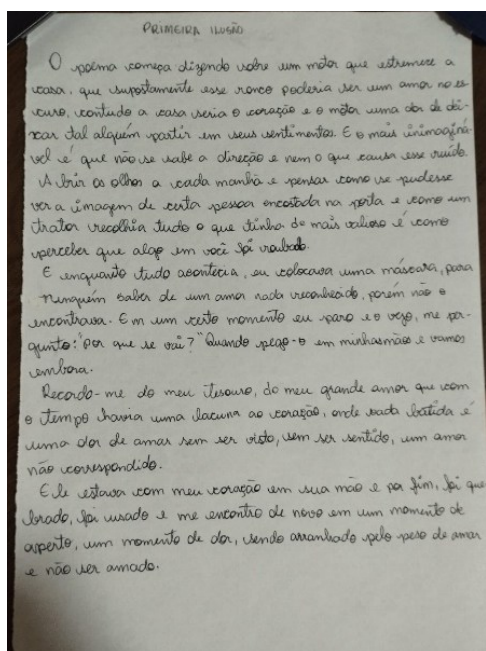 PRIMEIRA ILUSÃO
O poema começa dizendo sobre um motor que estremece a
casa, que supostamente esse ronco poderia ser um amor no es-
curo, contudo a casa seria o coração e o motor uma dor de dei-
xar tal alguém partir em seus sentimentos. E o mais inimaginá-
vel é que não se sabe a direção e nem o que causa esse ruído.
Abrir os olhos a cada manhã e pensar como se pudesse
ver a imagem de certa pessoa encostada na porta e como um
trator recolhia tudo o que tinha de mais valioso é como
perceber que algo em você foi roubado.
E enquanto tudo acontecia, eu colocava uma máscara, para
ninguém saber de um amor nada reconhecido, porém não o
encontrava. Em um certo momento eu paro e o vejo, me per-
gunto: "Por que se vai?" Quando pego-o em minhas mão e vamos
embora.
Recordo-me do meu tesouro, do meu grande amor que com
o tempo havia uma lacuna ao coração, onde cada batida é
uma dor de amar sem ser visto, sem ser sentido, um amor
não correspondido.
Ele estava com meu coração em sua mão e por fim, foi que
brado, foi usado e me encontro de novo em um momento de
aperto, um momento de dor, sendo arranhado pelo peso de amar
e não ser amado.